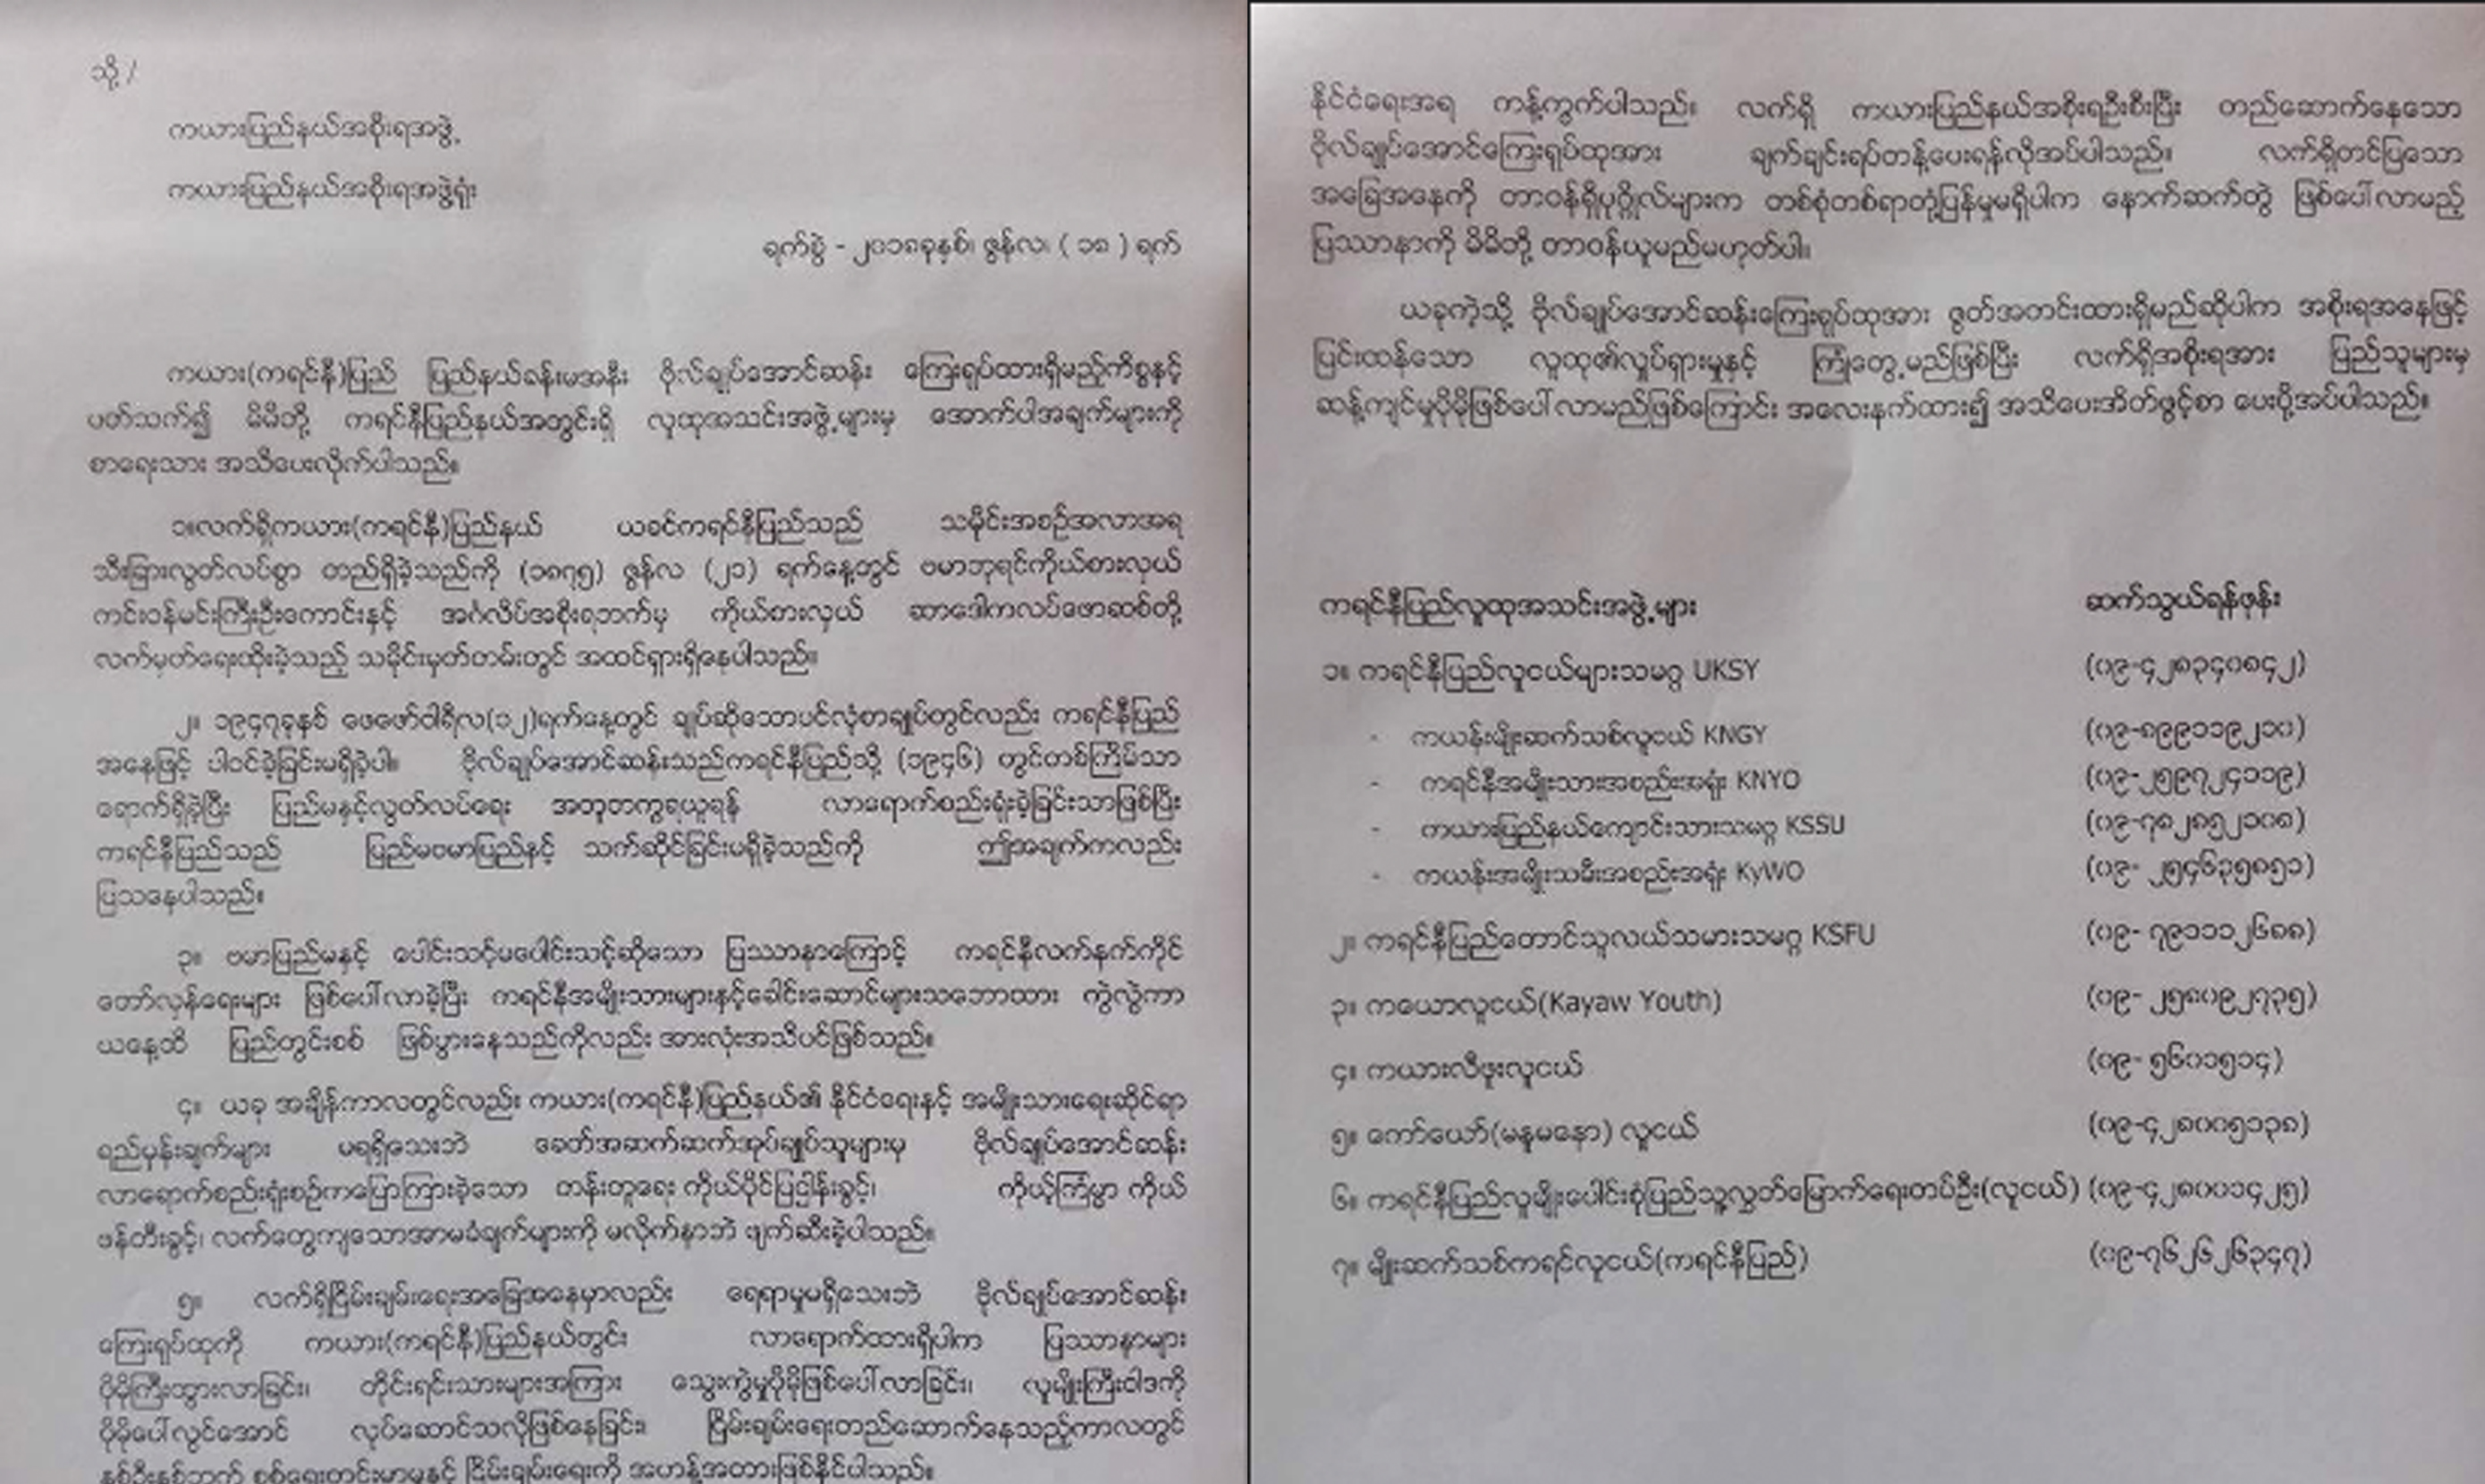 သို့ /
ကယားပြည်နယ်အစိုးရအဖွဲ့
ကယားပြည်နယ်အစိုးရအဖွဲ့ရုံး
ရက်စွဲ - ၂၀၁၈ခုနှစ်၊ ဇွန်လ၊ ( ၁၈ ) ရက်
ကယား(ကရင်နီ)ပြည် ပြည်နယ်ခန်းမအနီး ဗိုလ်ချုပ်အောင်ဆန်း ကြေးရုပ်ထားရှိမည့်ကိစ္စနှင့်
ပတ်သက်၍ မိမိတို့ ကရင်နီပြည်နယ်အတွင်းရှိ လူထုအသင်းအဖွဲ့များမှ အောက်ပါအချက်များကို
စာရေးသား အသိပေးလိုက်ပါသည်။
၁။လက်ရှိကယား(ကရင်နီ)ပြည်နယ် ယခင်ကရင်နီပြည်သည် သမိုင်းအစဉ်အလာအရ
သီးခြားလွတ်လပ်စွာ တည်ရှိခဲ့သည်ကို (၁၈၇၅) ဇွန်လ (၂၁) ရက်နေ့တွင် ဗမာဘုရင်ကိုယ်စားလှယ်
ကင်းဝန်မင်းကြီးဦးကောင်းနှင့် အင်္ဂလိပ်အစိုးရဘက်မှ ကိုယ်စားလှယ် ဆာဒေါကလပ်ဖောဆစ်တို့
လက်မှတ်ရေးထိုးခဲ့သည့် သမိုင်းမှတ်တမ်းတွင် အထင်ရှားရှိနေပါသည်။
၂။ ၁၉၄၇ခုနှစ် ဖေဖော်ဝါရီလ(၁၂)ရက်နေ့တွင် ချုပ်ဆိုသောပင်လုံစာချုပ်တွင်လည်း ကရင်နီပြည်
အနေဖြင့် ပါဝင်ခဲ့ခြင်းမရှိခဲ့ပါ။ ဗိုလ်ချုပ်အောင်ဆန်းသည်ကရင်နီပြည်သို့ (၁၉၄၆) တွင်တစ်ကြိမ်သာ
ရောက်ရှိခဲ့ပြီး ပြည်မနှင့်လွတ်လပ်ရေး အတူတကွရယူရန် လာရောက်စည်းရုံးခဲ့ခြင်းသာဖြစ်ပြီး
ကရင်နီပြည်သည် ပြည်မဗမာပြည်နှင့် သက်ဆိုင်ခြင်းမရှိခဲ့သည်ကို ဤအချက်ကလည်း
ပြသနေပါသည်။
၃။ ဗမာပြည်မနှင့် ပေါင်းသင့်မပေါင်းသင့်ဆိုသော ပြဿာနာကြောင့် ကရင်နီလက်နက်ကိုင်
တော်လှန်ရေးများ ဖြစ်ပေါ်လာခဲ့ပြီး ကရင်နီအမျိုးသားများနှင့်ခေါင်းဆောင်များသဘောထား ကွဲလွဲကာ
ယနေ့ထိ ပြည်တွင်းစစ် ဖြစ်ပွားနေသည်ကိုလည်း အားလုံးအသိပင်ဖြစ်သည်။
၄။ ယခု အချိန်ကာလတွင်လည်း ကယား(ကရင်နီ)ပြည်နယ်၏ နိုင်ငံရေးနှင့် အမျိုးသားရေးဆိုင်ရာ
ရည်မှန်းချက်များ မရရှိသေးဘဲ ခေတ်အဆက်ဆက်အုပ်ချုပ်သူများမှ ဗိုလ်ချုပ်အောင်ဆန်း
လာရောက်စည်းရုံးစဉ်ကပြောကြားခဲ့သော တန်းတူရေး ကိုယ်ပိုင်ပြဌါန်းခွင့်၊ ကိုယ့်ကြမ္မာ ကိုယ်
ဖန်တီးခွင့်၊ လက်တွေ့ကျသောအာမခံချက်များကို မလိုက်နာဘဲ ဖျက်ဆီးခဲ့ပါသည်။
၅။ လက်ရှိငြိမ်းချမ်းရေးအခြေအနေမှာလည်း ရေရာမှုမရှိသေးဘဲ ဗိုလ်ချုပ်အောင်ဆန်း
ကြေးရုပ်ထုကို ကယား(ကရင်နီ)ပြည်နယ်တွင်း လာရောက်ထားရှိပါက ပြဿာနာများ
ပိုမိုကြီးထွားလာခြင်း၊ တိုင်းရင်းသားများအကြား သွေးကွဲမှုပိုမိုဖြစ်ပေါ်လာခြင်း၊ လူမျိုးကြီးဝါဒကို
ပိုမိုပေါ်လွင်အောင် လုပ်ဆောင်သလိုဖြစ်နေခြင်း၊ ငြိမ်းချမ်းရေးတည်ဆောက်နေသည့်ကာလတွင်
နှစ်ဦးနှစ်ဘက် စစ်ရေးတင်းမာမှုနှင့် ငြိမ်းချမ်းရေးကို အဟန့်အတားဖြစ်နိုင်ပါသည်။
နိုင်ငံရေးအရ ကန့်ကွက်ပါသည်။ လက်ရှိ ကယားပြည်နယ်အစိုးရဦးစီးပြီး တည်ဆောက်နေသော
ဗိုလ်ချုပ်အောင်ကြေးရုပ်ထုအား ချက်ချင်းရပ်တန့်ပေးရန်လိုအပ်ပါသည်။ လက်ရှိတင်ပြသော
အခြေအနေကို တာဝန်ရှိပုဂ္ဂိုလ်များက တစ်စုံတစ်ရာတုံ့ပြန်မှုမရှိပါက နောက်ဆက်တွဲ ဖြစ်ပေါ်လာမည့်
ပြဿာနာကို မိမိတို့ တာဝန်ယူမည်မဟုတ်ပါ။
ယခုကဲ့သို့ ဗိုလ်ချုပ်အောင်ဆန်းကြေးရုပ်ထုအား ဇွတ်အတင်းထားရှိမည်ဆိုပါက အစိုးရအနေဖြင့်
ပြင်းထန်သော လူထု၏လှုပ်ရှားမှုနှင့် ကြုံတွေ့မည်ဖြစ်ပြီး လက်ရှိအစိုးရအား ပြည်သူများမှ
ဆန့်ကျင်မှုပိုမိုဖြစ်ပေါ်လာမည်ဖြစ်ကြောင်း အလေးနက်ထား၍ အသိပေးအိတ်ဖွင့်စာ ပေးပို့အပ်ပါသည်။
ကရင်နီပြည်လူထုအသင်းအဖွဲ့များ ဆက်သွယ်ရန်ဖုန်း
၁။ ကရင်နီပြည်လူငယ်များသမဂ္ဂ UKSY (၀၉-၄၂၈၃၄၀၈၄၂)
- ကယန်းမျိုးဆက်သစ်လူငယ် KNGY (၀၉-၈၉၉၁၁၉၂၁၀)
- ကရင်နီအမျိုးသားအစည်းအရုံး KNYO (၀၉-၂၅၉၇၂၄၁၁၉)
- ကယားပြည်နယ်ကျောင်းသားသမဂ္ဂ KSSU (၀၉-၇၈၂၈၅၂၁၀၈)
- ကယန်းအမျိုးသမီးအစည်းအရုံး KyWO (၀၉- ၂၅၄၆၃၅၈၅၁)
၂။ ကရင်နီပြည်တောင်သူလယ်သမားသမဂ္ဂ KSFU (၀၉- ၇၉၁၁၁၂၆၈၈)
၃။ ကယောလူငယ်(Kayaw Youth) (၀၉- ၂၅၈၀၉၂၇၃၅)
၄။ ကယားလီဖူးလူငယ် (၀၉- ၅၆၀၁၅၁၄)
၅။ ကော်ယော်(မနူမနော) လူငယ် (၀၉-၄၂၈၀၀၅၁၃၈)
၆။ ကရင်နီပြည်လူမျိုးပေါင်းစုံပြည်သူ့လွှတ်မြောက်ရေးတပ်ဦး(လူငယ်) (၀၉-၄၂၈၀၀၁၄၂၅)
၇။ မျိုးဆက်သစ်ကရင်လူငယ်(ကရင်နီပြည်) (၀၉-၇၆၂၆၂၆၃၄၇)